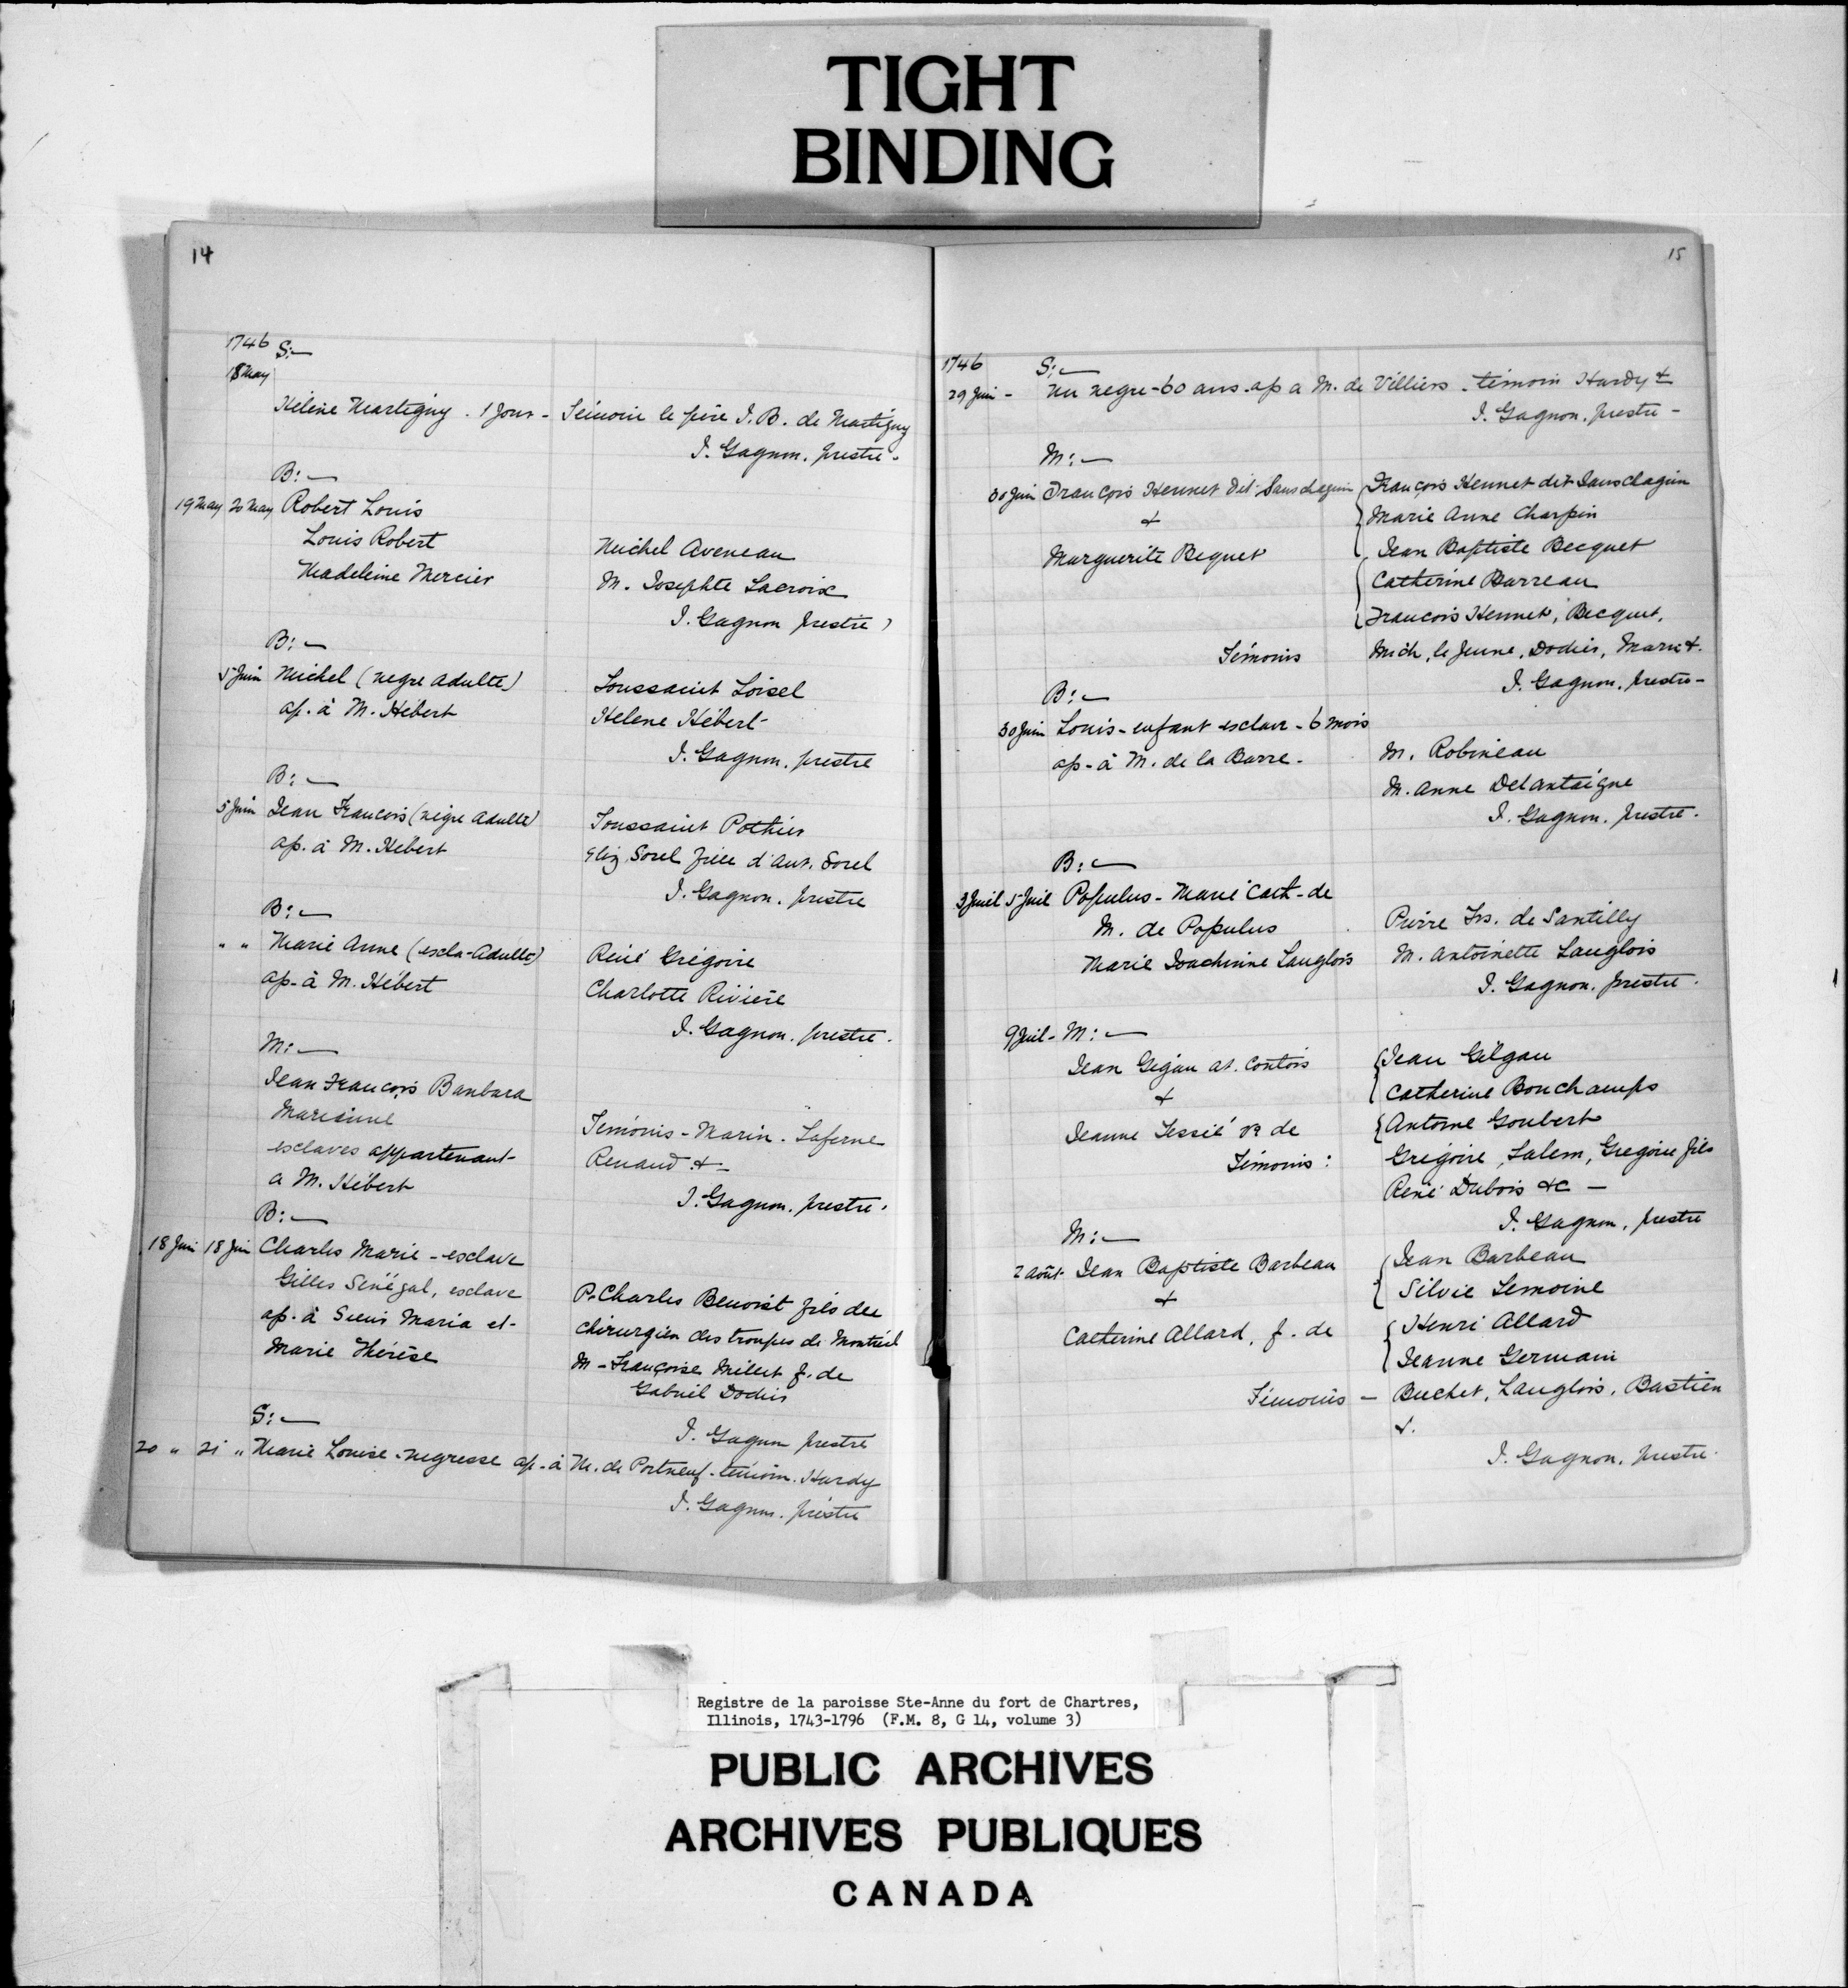 TIGHT
BINDING
14
1746 S:—
18 May
Hélène Martigny . 1 jour - Témoin le père J. B. de Martigny
J. Gagnon, prestre -
B:—
19 May 20 May Robert Louis
Louis Robert
Michel Aveneau
Madeleine Mercier
M. Josephte Lacroix
J. Gagnon prestre
B:—
5 Juin Michel (negre adulte)
Toussaint Loisel
ap. à M. Hébert
Helene Hébert
J. Gagnon, prestre
B:—
5 Juin Jean Francois (nègre adulte)
Toussaint Pothier
ap. à M. Hébert
Eliz. Sorel fille d'Ant. Sorel
J. Gagnon, prestre
B:—
" " Marie Anne (escla-Adulte)
René Grégoire
ap. à M. Hébert
Charlotte Rivière
J. Gagnon, prestre.
M:—
Jean Francois Banbara
Marianne
Témoins - Marin - Laferne
esclaves appartenant
Renaud &-
a M. Hébert
J. Gagnon, prestre.
B:—
18 Juin 18 Juin Charles Marie - esclave
Gilles Sénégal, esclave
P. Charles Benoist fils du
ap. à Sieur Maria et
chirurgien des troupes de Montréal
Marie Thérèse
M - Françoise Millet f. de
Gabriel Dodier
J. Gagnon prestre
S:—
20 " 21 " Marie Louise - negresse ap. à M. de Portneuf - témoin. Hardy
J. Gagnon, prêstre
15
1746 S:—
29 Juin - Un negre - 60 ans - ap a M. de Villiers - témoin Hardy &
J. Gagnon, prestre -
M:—
30 Juin François Hennet dit Sanschagrin François Hennet dit Sanschagrin
&
Marie Anne Charpin
Marguerite Bequet
Jean Baptiste Becquet
Catherine Barreau
Francois Hennet, Becquet,
Témoins Mich, le Jeune, Dodier, Marin &.
J. Gagnon, prestre -
B:—
30 Juin Louis - enfant esclave - 6 mois
ap - à M. de la Barre.
M. Robineau
M. Anne Delantaigne
J. Gagnon, prestre.
B:—
3 Juil 5 Juil Populus - Marie Cath - de
M. de Populus
Pierre Frs. de Santilly
Marie Joachinine Langlois
M. Antoinette Langlois
J. Gagnon, prestre.
9 Juil - M:—
Jean Gigau at. Contois
Jean Gilgau
&
Catherine Bonchamps
Jeanne Tessié ve de
Antoine Goubert
Témoins: Grégoire, Salem, Gregoire fils
René Dubois &c —
J. Gagnon, prestre
M:—
2 Août - Jean Baptiste Barbeau
Jean Barbeau
&
Silvie Lemoine
Catherine Allard, f. de
Henri Allard
Jeanne Germain
Témoins - Buchet, Langlois, Bastien
&.
J. Gagnon, prestre.
Registre de la paroisse Ste-Anne du fort de Chartres,
Illinois, 1743-1796 (F.M. 8, G 14, volume 3)
PUBLIC ARCHIVES
ARCHIVES PUBLIQUES
CANADA